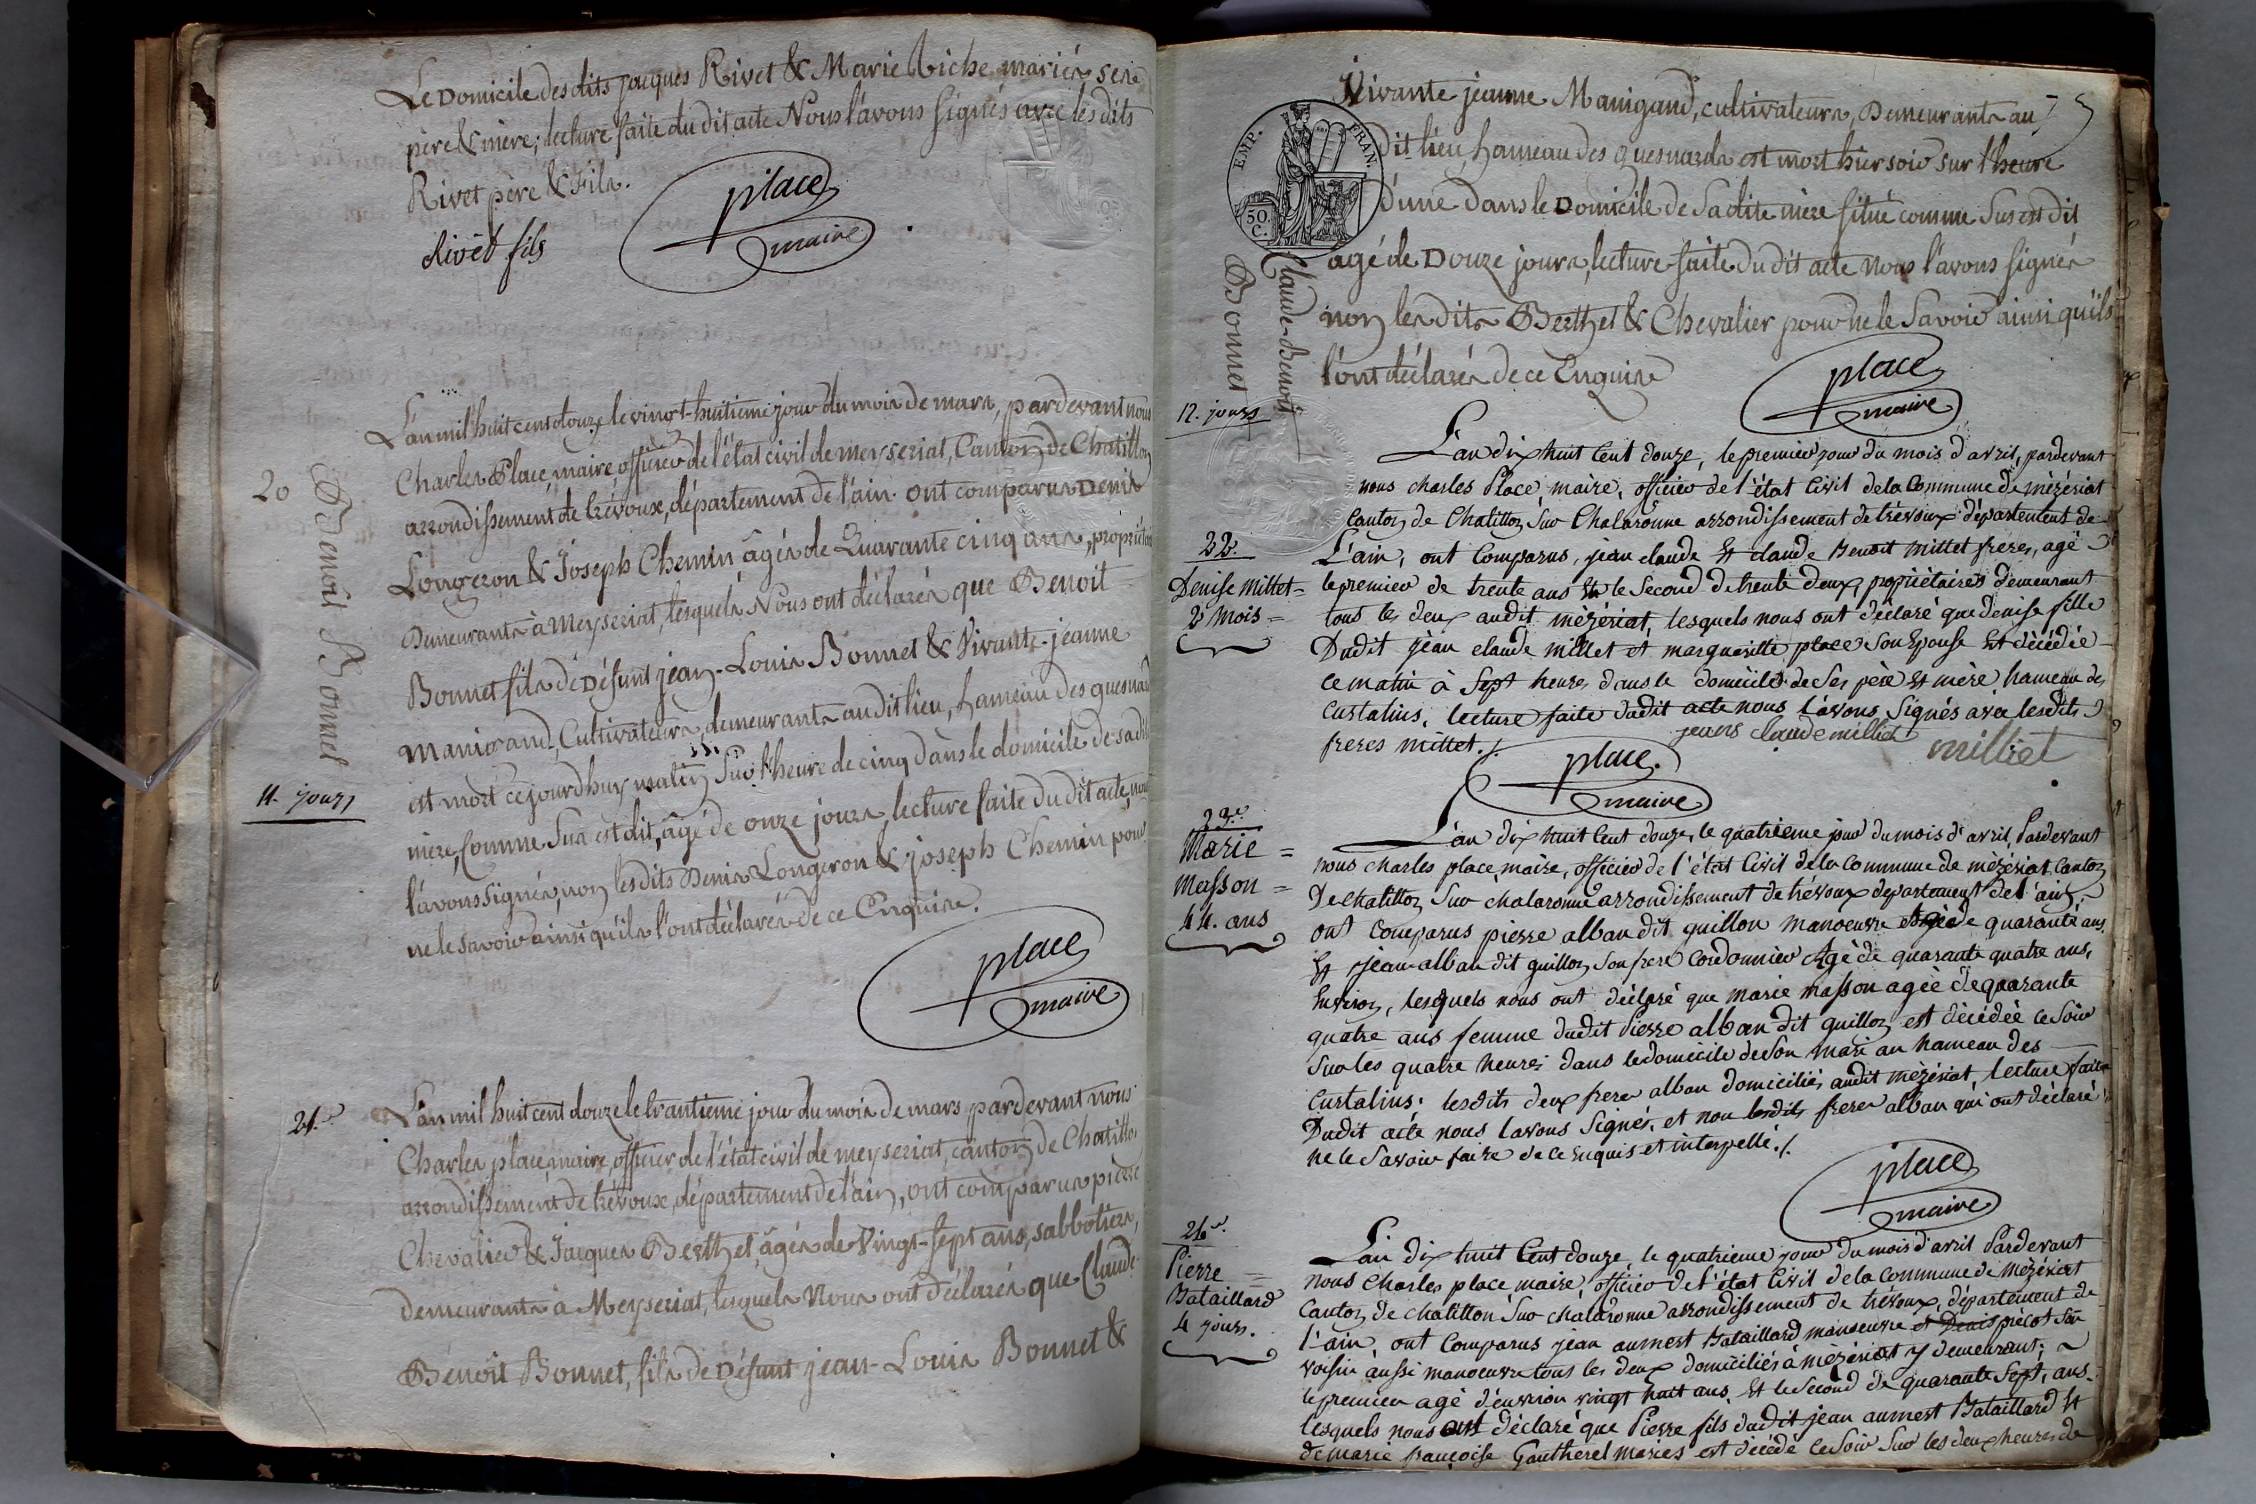 Le Domicile des dits jacques Rivet & Marie Riche mariés ses
père & mère; lecture faite du dit acte Nous l'avons signés avec les dits
Rivet père & Fils.
Rivet fils
place
maire
20
Benoit Bonnet
11. jours
L'an mil huit cent douze le vingt-huitieme jour du mois de mars, pardevant nous
Charles Place, maire, officier de l'état civil de meyseriat, Canton de Chatillon
arrondissement de trévoux, département de l'ain. ont comparus Denis
Longeron & Joseph Chemin âgés de Quarante cinq ans, propriétai
Demeurants à Meyseriat, lesquels Nous ont déclarés que Benoit
Bonnet fils de Défunt jean-Louis Bonnet & Vivante-jeanne
Manigand, Cultivateurs, demeurants au dit lieu, hameau des quesnard
est mort cejourdhuy matin sur l'heure de cinq dans le domicile de sadite
mère, Comme Sus est dit, âgé de onze jours, lecture faite du dit acte, nous
l'avons signés, non lesdits Denis Longeron & joseph Chemin pour
ne le savoir ainsi qu'ils l'ont déclarés de ce Enquis.
place
maire
21.e
L'an mil huit cent douze le trantieme jour du mois de mars pardevant nous
Charles place, maire, officier de l'état civil de meyseriat, canton de Chatillon
arrondissement de trévoux, département de l'ain, ont comparus pierre
Chevalier & Jacques Berthet, âgés de Vingt-sept ans, sabbotiers,
demeurants à Meyseriat, lesquels Nous ont déclarés que Claude-
Benoit Bonnet, fils de Défunt jean-Louis Bonnet &
Vivante jeanne Manigand, cultivateurs, Demeurants au
EMP. FRAN.
50. C.
Claude-Benoit
Bonnet
12. jours
Dit lieu, hameau des quesnards est mort hier soir sur l'heure
d'une dans le Domicile de Sadite mère situé comme Sus est dit
âgé de Douze jours, lecture faite du dit acte nous l'avons signés
non les dits Berthet & Chevalier pour ne le Savoir ainsi qu'ils
l'ont déclarés de ce Enquis
place
maire
22.
Denise Millet =
2 mois =
L'an dix huit Cent douze, le premier jour du mois d'avril, pardevant
nous charles Place, maire, officier de l'état Civil de la Commune de mézériat
Canton de Chatillon Sur Chalaronne arrondissement de trévoux département de
L'ain, ont Comparus, jean claude Et claude Benoit Millet freres, agé
le premier de trente ans Et le Second de trente deux, propriétaires demeurant
tous les deux audit mézériat, lesquels nous ont déclaré que denise fille
Dudit jean claude millet et marguerite place Son Epouse Est décédée
ce matin à Sept heures dans le domicile de Ses père Et mère hameau des
Custalins, lecture faite dudit acte nous l'avons Signés avec lesdits
freres Millet./.
jean claude milliet
milliet
place.
maire
23.e
Marie =
Masson =
44. ans
L'an dix huit Cent douze, le quatrieme jour du mois d'avril, Pardevant
nous charles place maire, officier de l'état Civil de la Commune de mézériat Canton
De Chatillon Sur chalaronne arrondissement de trévoux departement de l'ain,
ont Comparus pierre alban dit guillon Manoeuvre Agé de quarante ans
Et jean alban dit guillon Son frere Cordonnier Agé de quarante quatre ans,
Environ, lesquels nous ont déclaré que marie masson agée de quarante
quatre ans femme dudit Pierre alban dit guillon est décédée ce Soir
Sur les quatre heures dans le domicile de Son mari au hameau des
Custalins. lesdits deux frere alban domiciliés audit mézériat, lecture faite
Dudit acte nous l'avons Signés, et non lesdits freres alban qui ont déclaré
ne le Savoir faire de ce Enquis et interpellé./.
place
maire
24.e
Pierre =
Bataillard
4 jours.
L'an dix huit Cent douze, le quatrieme jour du mois d'avril Pardevant
nous Charles place maire, officier de l'état Civil de la Commune de Mézériat
Canton de chatillon Sur chalaronne arrondissement de trévoux, département de
l'ain, ont Comparus jean aumest Bataillard manoeuvre et Denis précot Son
voisin aussi manoeuvre tous les deux domiciliés à mézériat y demeurant;
le premier agé d'environ vingt huit ans Et le Second de quarante Sept, ans.
lesquels nous ont déclaré que Pierre fils dudit jean aumest Bataillard Et
de marie françoise Gautherel mariés est décédé ce Soir Sur les deux heures de